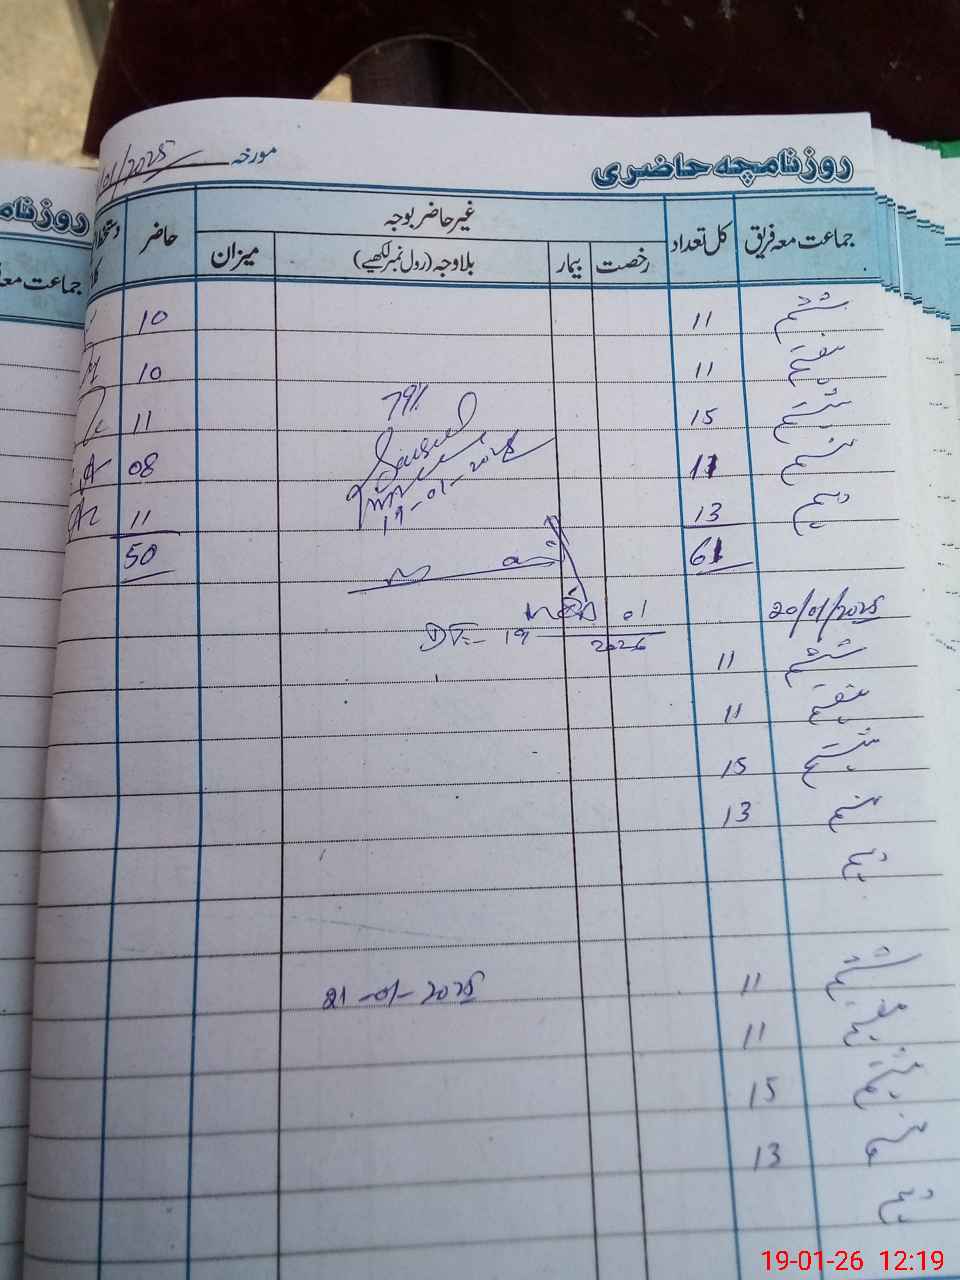 روزنامچہ حاضری
مورخہ 01/2025
جماعت معہ فریق کل تعداد غیر حاضر بوجہ حاضر
رخصت بیمار بلاوجہ (رول نمبر لکھیے) میزان
ششم 11 10
ہفتم 11 10
ہشتم 15 11
79%
نہم 11 08
19-01-2025
دہم 13 11
61 50
20/01/2025
01
DT:- 19 2026
ششم 11
ہفتم 11
ہشتم 15
نہم 13
دہم
21-01-2025
ششم 11
ہفتم 11
ہشتم 15
نہم 13
دہم
روزنام
جماعت معہ
19-01-26 12:19